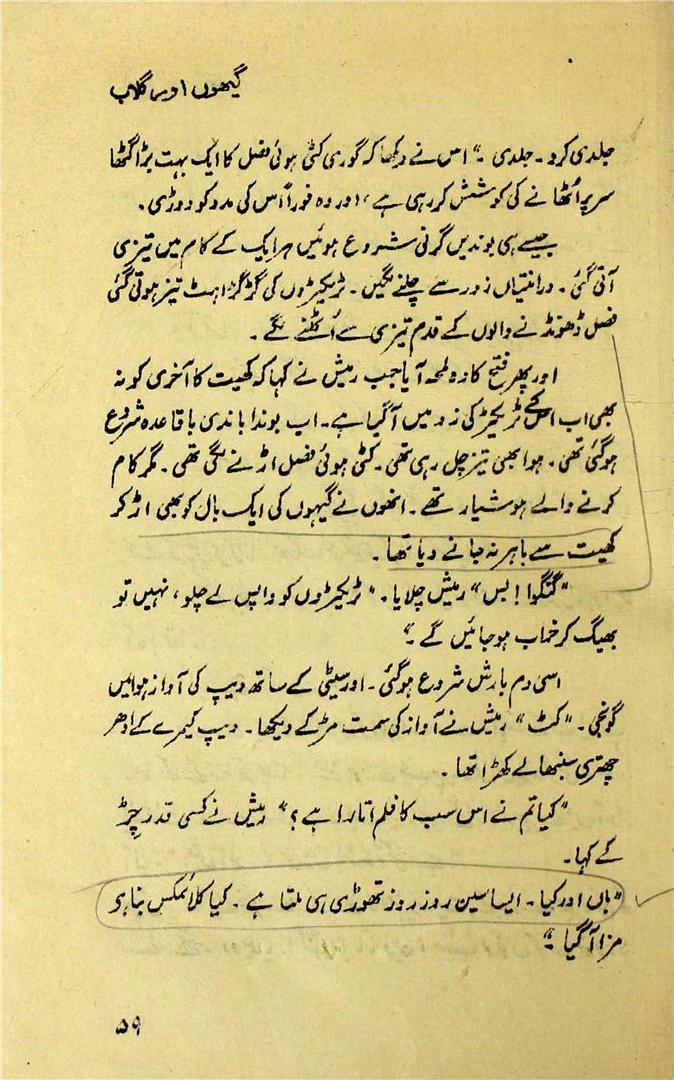 گیہوں اور گلاب
جلدی کرو۔ جلدی ۔“ اس نے دیکھا کہ گوری کٹی ہوئی فصل کا ایک بہت بڑا گٹھا
سر پر اُٹھانے کی کوشش کر رہی ہے، اور وہ فوراً اُس کی مدد کو دوڑی.
جیسے ہی بوندیں گرنی شروع ہوئیں ہر ایک کے کام میں تیزی
آتی گئی۔ درانتیاں زور سے چلنے لگیں۔ ٹریکٹروں کی گڑگڑاہٹ تیز ہوتی گئی
فصل ڈھونڈنے والوں کے قدم تیزی سے اُٹھنے لگے۔
اور پھر فتح کا وہ لمحہ آیا جب رمیش نے کہا کہ کھیت کا آخری کونہ
بھی اب اسکے ٹریکٹر کی زد میں آ گیا ہے۔ اب بوندا باندی باقاعدہ شروع
ہو گئی تھی. ہوا بھی تیز چل رہی تھی۔ کٹی ہوئی فصل اڑنے لگی تھی۔ مگر کام
کرنے والے ہوشیار تھے۔ انھوں نے گیہوں کی ایک بال کو بھی اڑ کر
کھیت سے باہر نہ جانے دیا تھا۔
”گنگوا! بس“ رمیش چلایا۔ ”ٹریکٹروں کو واپس لے چلو، نہیں تو
بھیگ کر خراب ہو جائیں گے۔“
اسی دم بارش شروع ہو گئی۔ اور سیٹی کے ساتھ دیپ کی آواز ہوا میں
گونجی۔ ”کٹ“ رمیش نے آواز کی سمت مڑ کے دیکھا۔ دیپ کیمرے کے ادھر
چھتری سنبھالے کھڑا تھا۔
”کیا تم نے اس سب کا فلم اتارا ہے؟“ رمیش نے کسی قدر چِڑ
کے کہا۔
”ہاں اور کیا۔ ایسا سین روز روز تھوڑی ہی ملتا ہے۔ کیا کلائمکس بنا ہو
مزا آ گیا۔“
۵۹